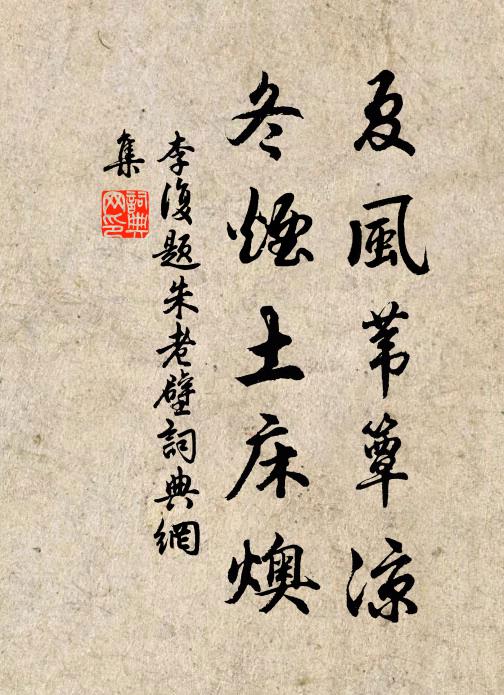 夏風苇簟涼
冬煙土床燠
李復題朱老壁詞典網
集
詞典
网印